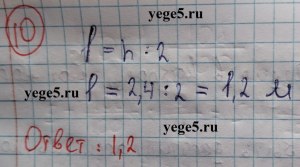 10
yege5.ru
l = h : 2
yege5.ru l = 2,4 : 2 = 1,2 м
yege5.ru
Ответ : 1,2